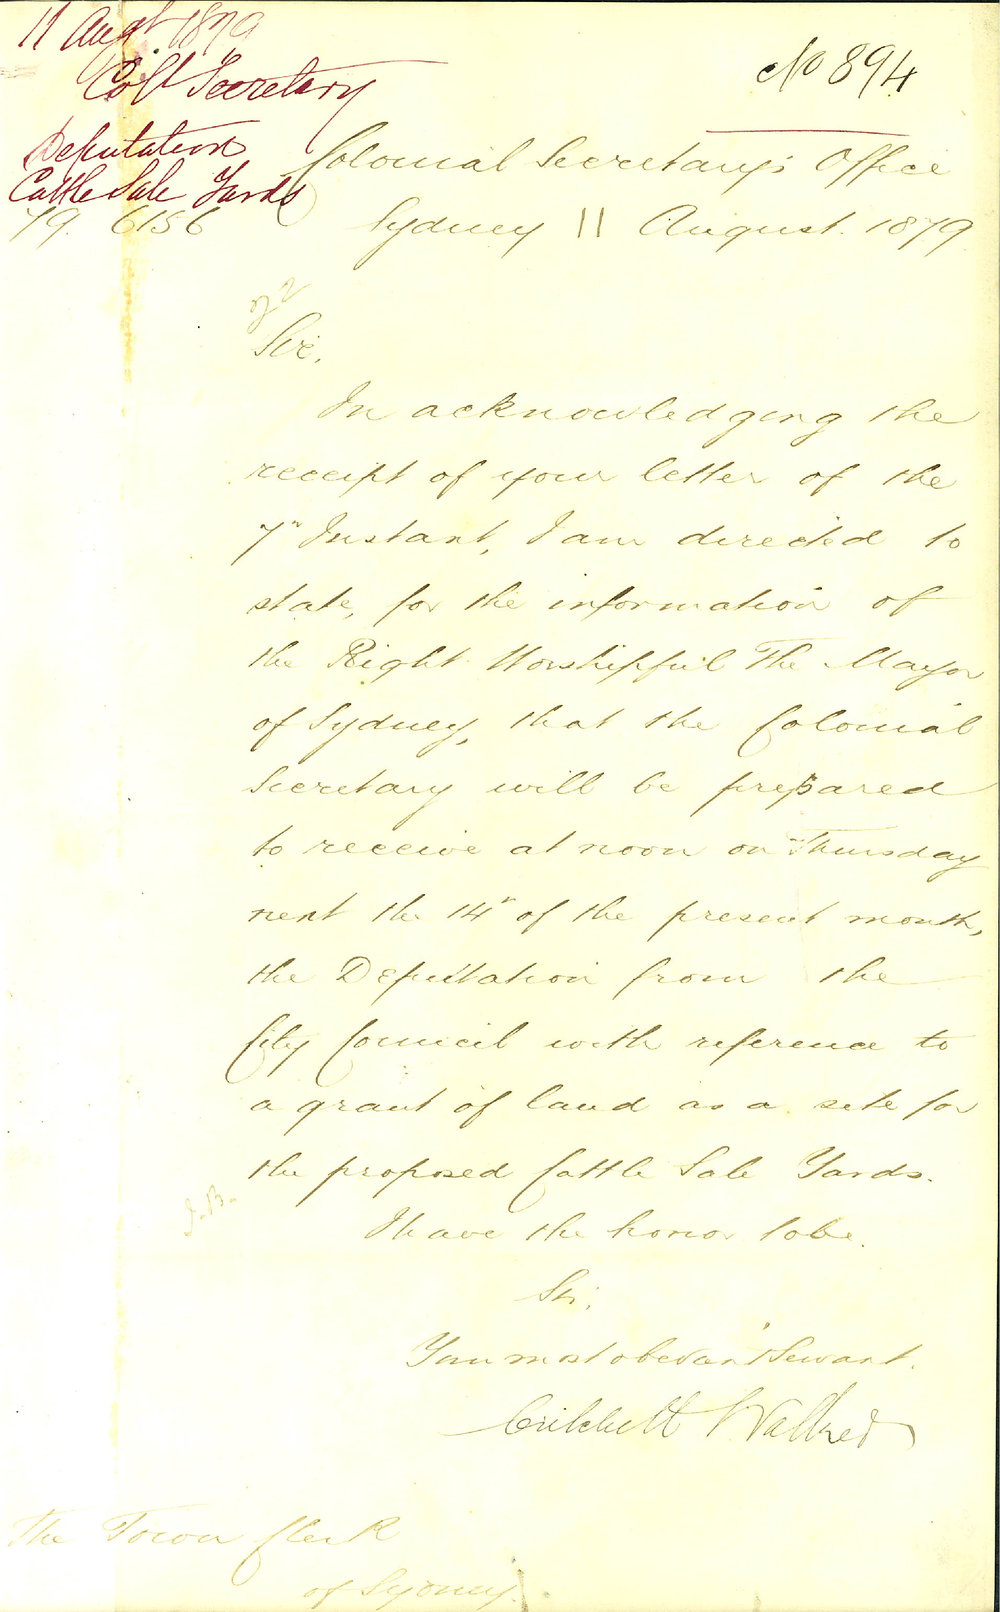 11 Augt 1879
Coll Secretary
Deputation
Cattle Sale Yards
79. 6156
No 894
Colonial Secretary's Office
Sydney 11 August. 1879
Sir,
In acknowledging the
receipt of your letter of the
7th Instant, I am directed to
state, for the information of
the Right Worshipful The Mayor
of Sydney, that the Colonial
Secretary will be prepared
to receive at noon on Thursday
next the 14th of the present month,
the Deputation from the
City Council with reference to
a grant of land as a site for
the proposed Cattle Sale Yards.
J.B.
I have the honor to be.
Sir,
Your most obedient Servant.
Critchett Walker
The Town Clerk
of Sydney.